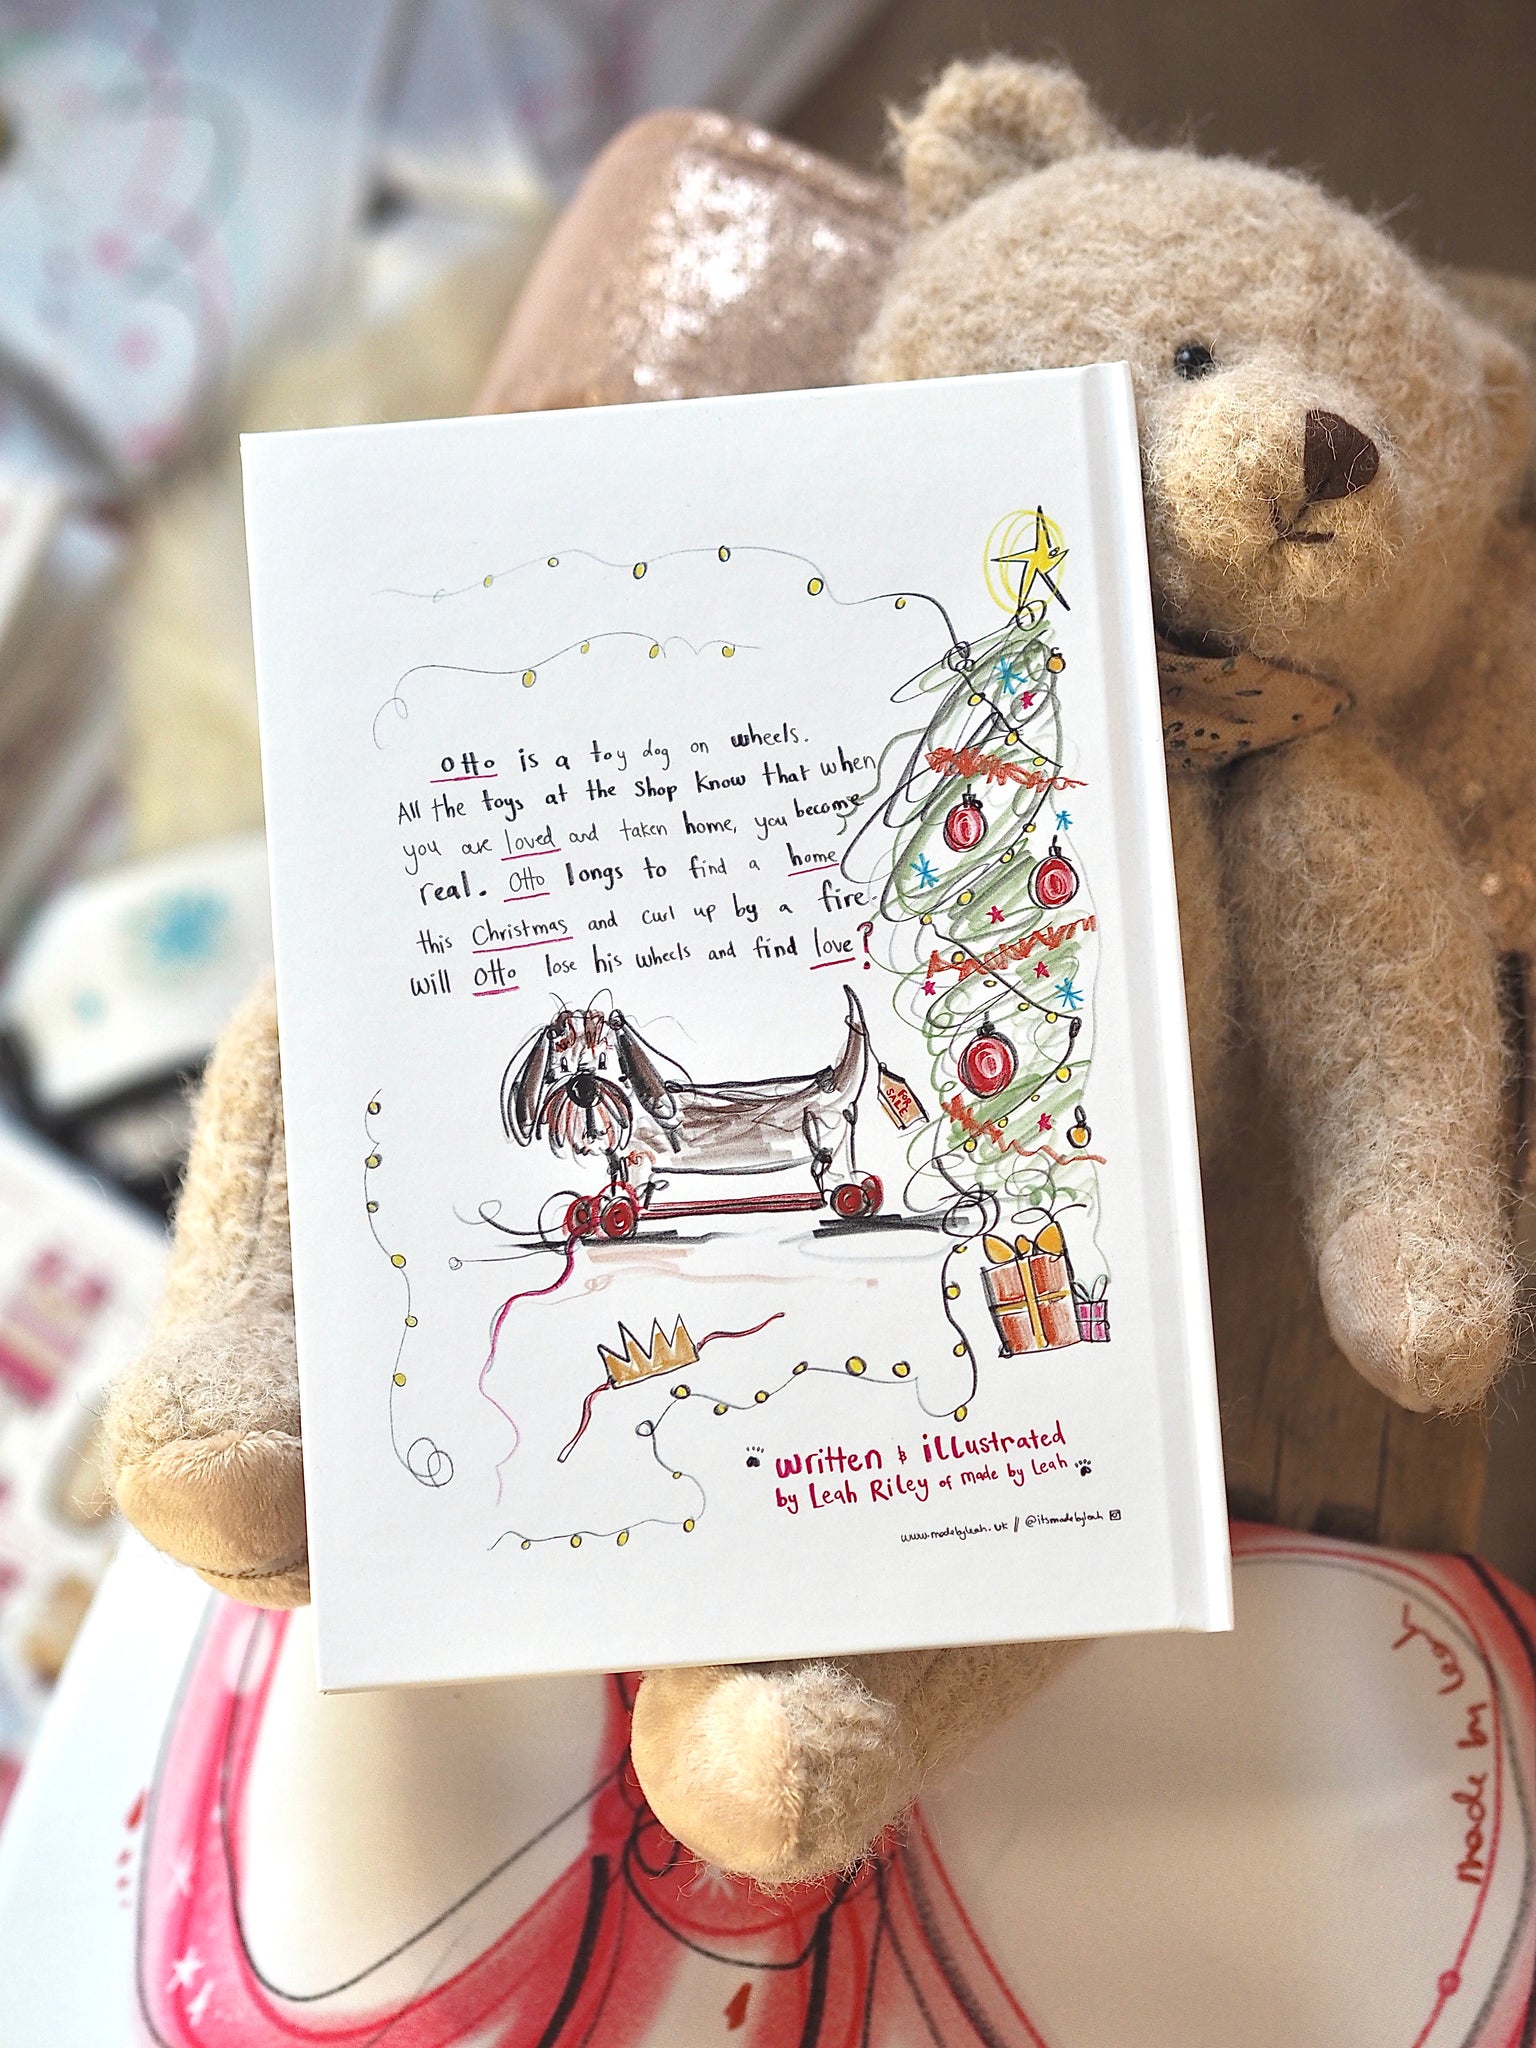 Otto is a toy dog on wheels.
All the toys at the shop know that when
you are loved and taken home, you become
real. Otto longs to find a home
this Christmas and curl up by a fire.
will Otto lose his wheels and find love?
FOR
SALE
written & illustrated
by Leah Riley of made by Leah
www.madebyleah.uk // @itsmadebyleah
made by Leah